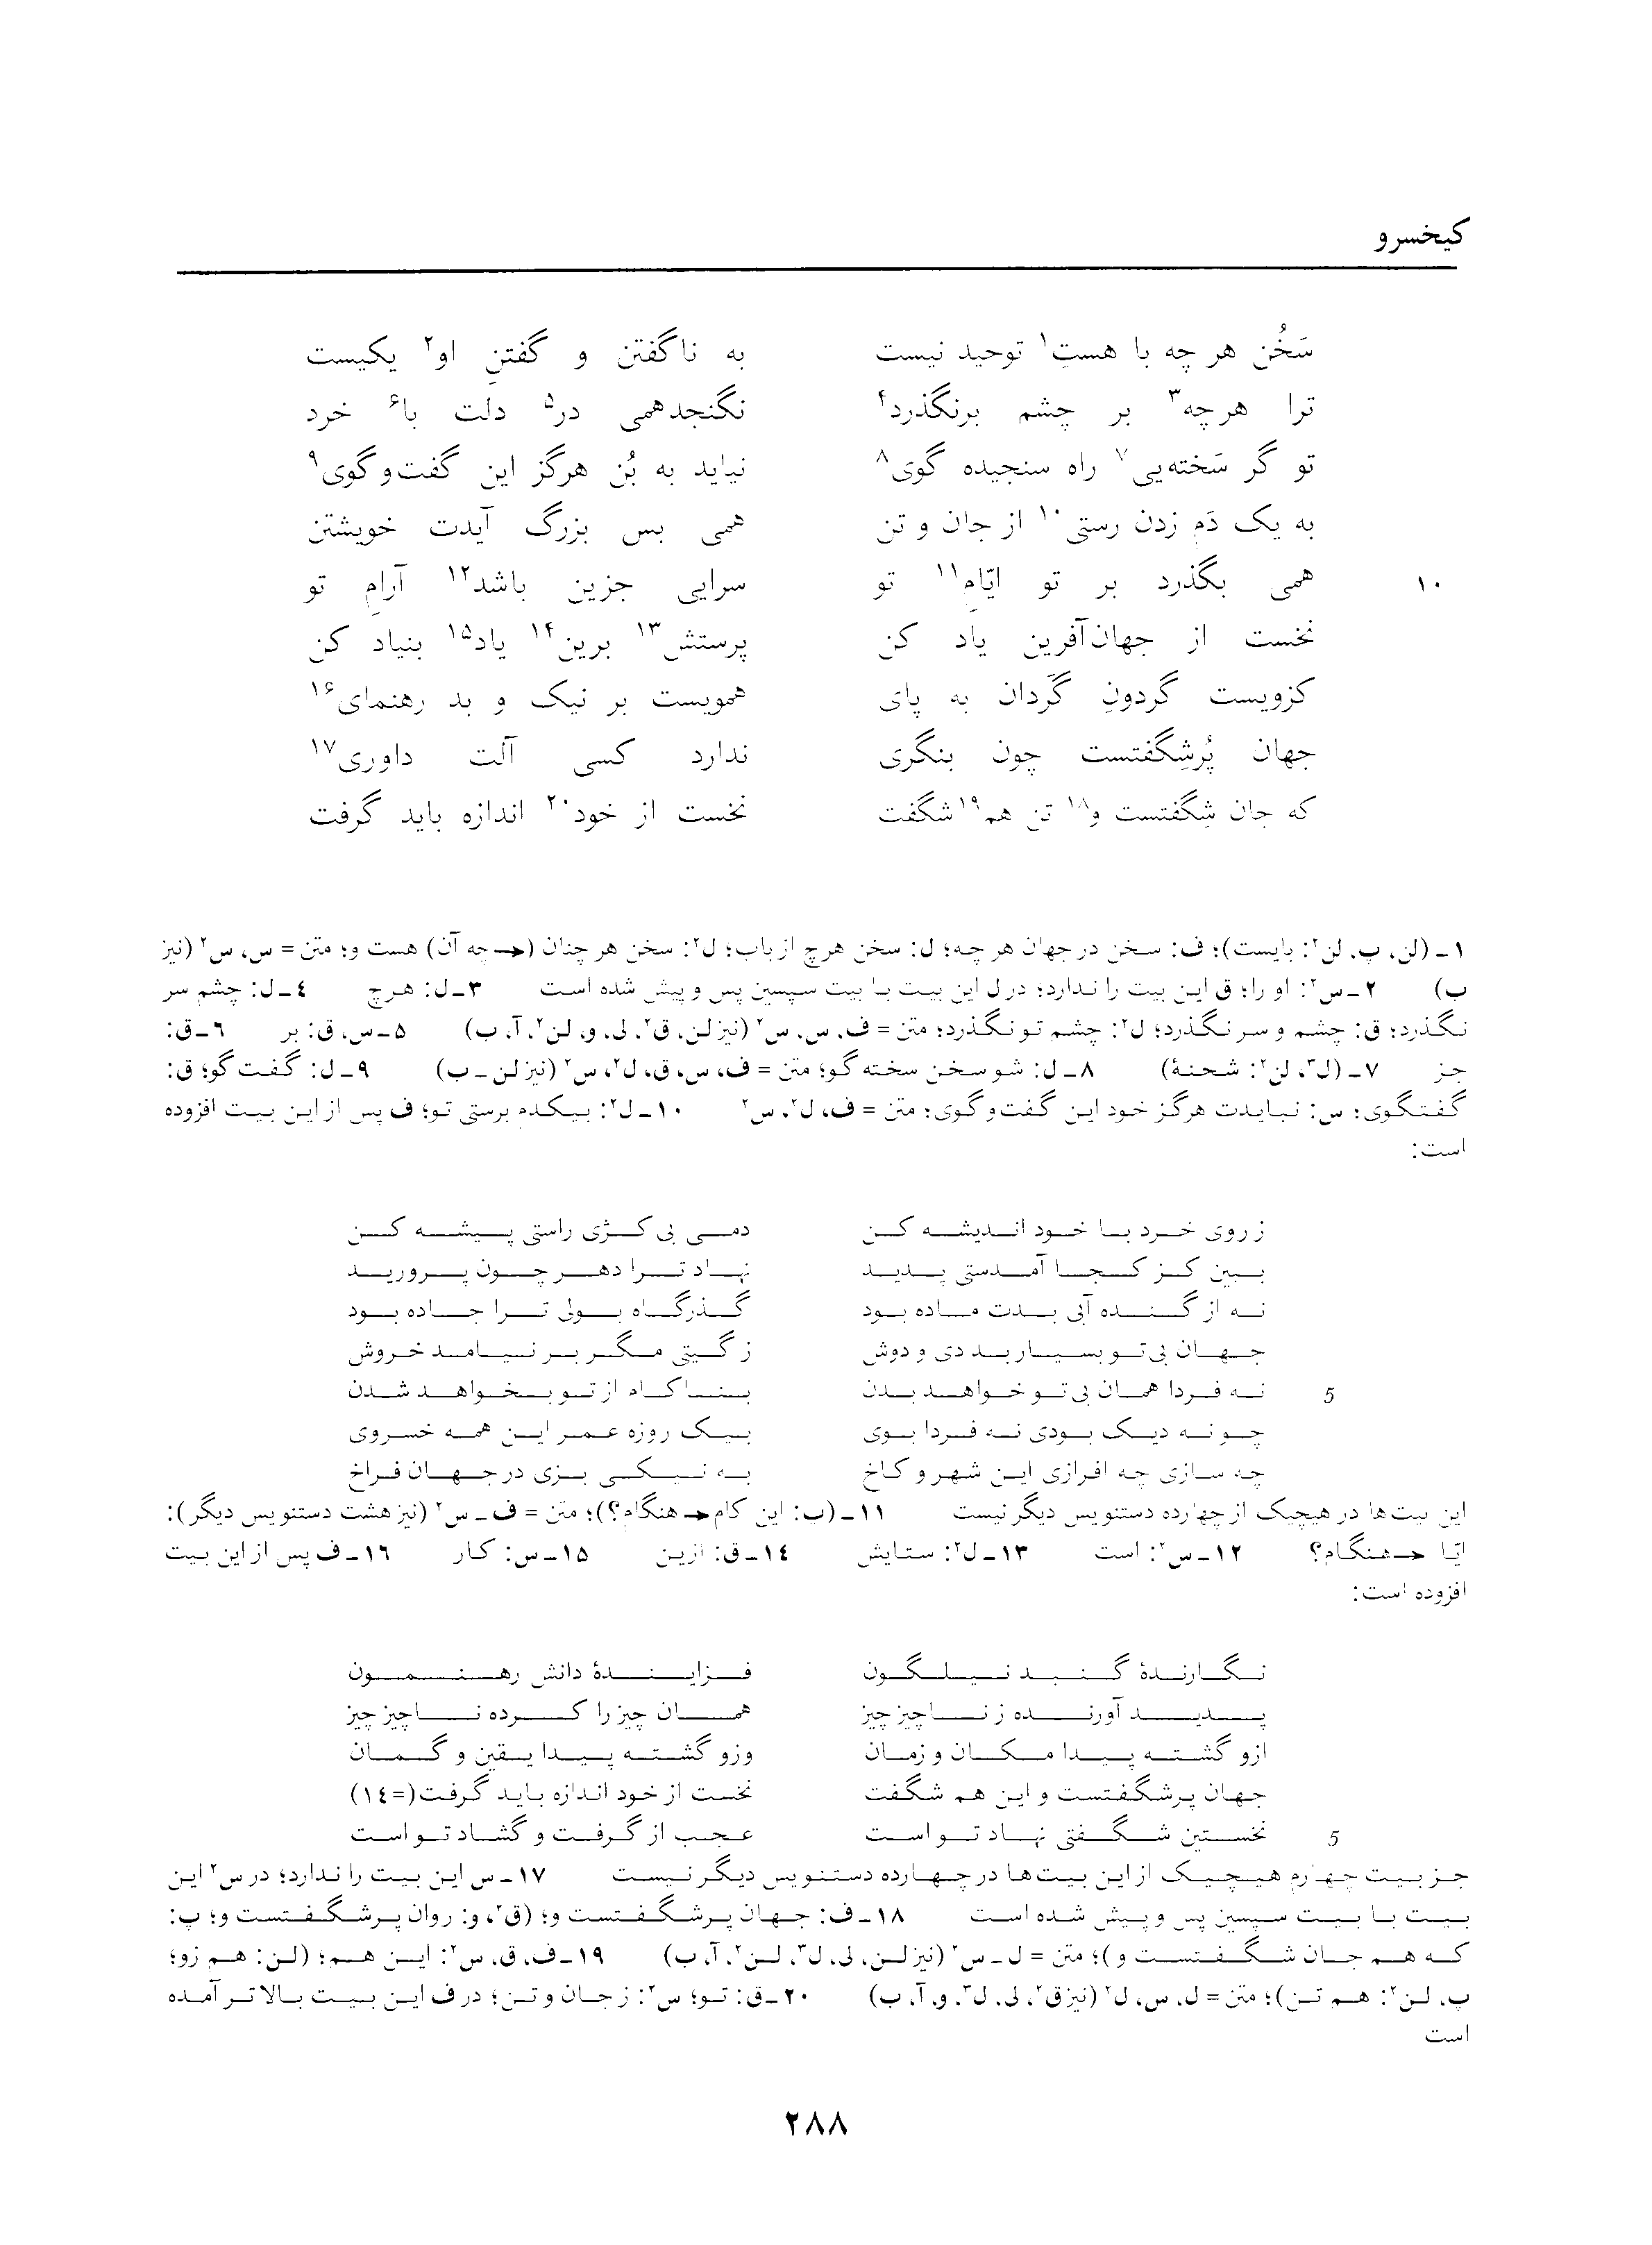 کیخسرو
سَخُن هر چه با هستِ۱ توحید نیست به ناگفتن و گفتنِ او۲ یکیست
ترا هرچه۳ بر چشم برنگذرد۴ نگنجدهمی در۵ دلت با۶ خرد
تو گر سَخته‌یی۷ راه سنجیده گوی۸ نیاید به بُن هرگز این گفت‌وگوی۹
به یک دَم زدن رستی۱۰ از جان و تن همی بس بزرگ آیدت خویشتن
۱۰ همی بگذرد بر تو ایّامِ۱۱ تو سرایی جزین باشد۱۲ آرامِ تو
نخست از جهان‌آفرین یاد کن پرستش۱۳ برین۱۴ یاد۱۵ بنیاد کن
کزویست گردونِ گَردان به پای همویست بر نیک و بد رهنمای۱۶
جهان پُرشِگفتست چون بنگری ندارد کسی آلت داوری۱۷
که جان شِگفتست و۱۸ تن هم۱۹ شگفت نخست از خود۲۰ اندازه باید گرفت
۱ـ (لن، پ، لن۲: بایست)؛ ف: سخن در جهان هر چه؛ ل: سخن هرچ از باب؛ ل۲: سخن هر چنان (→ چه آن) هست و؛ متن = س، س۲ (نیز
ب) ۲ـ س۲: او را؛ ق این بیت را ندارد؛ در ل این بیت با بیت سپسین پس و پیش شده است ۳ـ ل: هرچ ۴ـ ل: چشم سر
نگذرد؛ ق: چشم و سر نگذرد؛ ل۲: چشم تو نگذرد؛ متن = ف، س، س۲ (نیز لن، ق۲، لی، و، لن۲، آ، ب) ۵ـ س، ق: بر ۶ـ ق:
جز ۷ـ (ل۳، لن۲: شحنهٔ) ۸ـ ل: شو سخن سخته گو؛ متن = ف، س، ق، ل۲، س۲ (نیز لن ـ ب) ۹ـ ل: گفت گو؛ ق:
گفتگوی؛ س: نبایدت هرگز خود این گفت‌وگوی؛ متن = ف، ل۲، س۲ ۱۰ـ ل۲: بیکدم برستی تو؛ ف پس از این بیت افزوده
است:
ز روی خرد با خود اندیشه کن دمی بی کژی راستی پیشه کن
ببین کز کجا آمدستی پدید نهاد ترا دهر چون پرورید
نه از گنده آبی بدت ماده بود گذرگاه بولی ترا جاده بود
جهان بی‌تو بسیار بد دی و دوش ز گیتی مگر بر نیامد خروش
5 نه فردا همان بی‌تو خواهد بدن بناکام از تو بخواهد شدن
چو نه دیک بودی نه فردا بوی بیک روزه عمر این همه خسروی
چه سازی چه افرازی این شهر و کاخ به نیکی بزی در جهان فراخ
این بیت‌ها در هیچیک از چهارده دستنویس دیگر نیست ۱۱ـ (ب: این کام → هنگام؟)؛ متن = ف ـ س۲ (نیز هشت دستنویس دیگر):
ایّا → هنگام؟ ۱۲ـ س۲: است ۱۳ـ ل۲: ستایش ۱۴ـ ق: ازین ۱۵ـ س: کار ۱۶ـ ف پس از این بیت
افزوده است:
نگارندهٔ گنبد نیلگون فزایندهٔ دانش رهنمون
پدید آورنده ز ناچیز چیز همان چیز را کرده ناچیز چیز
ازو گشته پیدا مکان و زمان وزو گشته پیدا یقین و گمان
جهان پرشگفتست و این هم شگفت نخست از خود اندازه باید گرفت (=۱۴)
5 نخستین شگفتی نهاد تو است عجب از گرفت و گشاد تو است
جز بیت چهارم هیچیک از این بیت‌ها در چهارده دستنویس دیگر نیست ۱۷ـ س این بیت را ندارد؛ در س۲ این
بیت با بیت سپسین پس و پیش شده است ۱۸ـ ف: جهان پرشگفتست و؛ (ق۲، و: روان پرشگفتست و؛ پ:
که هم جان شگفتست و)؛ متن = ل ـ س۲ (نیز لن، لی، ل۳، لن۲، آ، ب) ۱۹ـ ف، ق، س۲: این هم؛ (لن: هم زو؛
پ، لن۲: هم تن)؛ متن = ل، س، ل۲ (نیز ق۲، لی، ل۳، و، آ، ب) ۲۰ـ ق: تو؛ س۲: ز جان و تن؛ در ف این بیت بالاتر آمده
است
۲۸۸